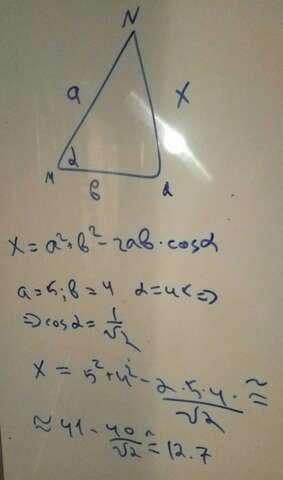 N
a
x
M
α
в
L
x = a² + в² - 2ав · cosα
a = 5; в = 4 α = 45 =>
=> cosα = 1/√2
x = 5² + 4² - 2·5·4·/√2 ≈
≈ 41 - 40/√2 ≈ 12.7